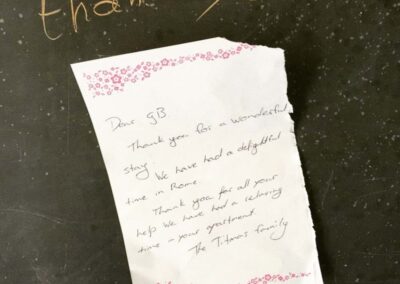 than
Dear GB.
Thank you for a wonderful
stay. We have had a delightful
time in Rome.
Thank you for all your
help We have had a relaxing
time in your apartment
The family